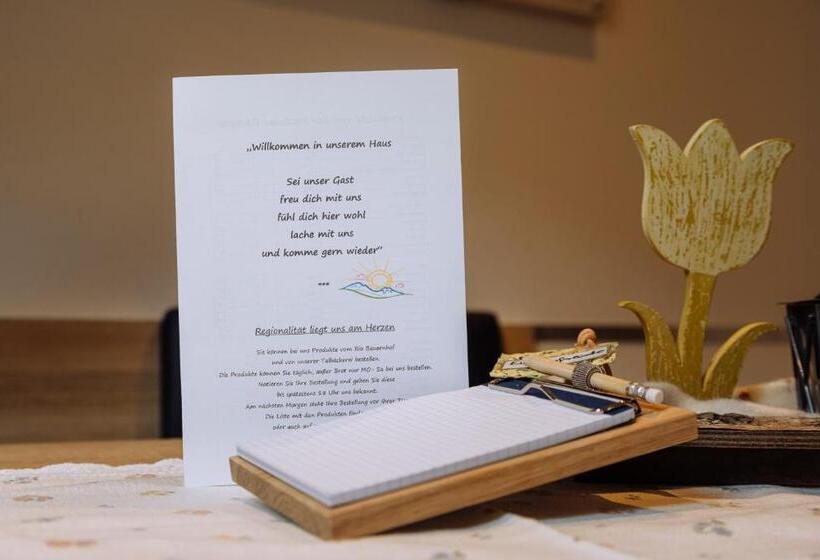 „Willkommen in unserem Haus
Sei unser Gast
freu dich mit uns
fühl dich hier wohl
lache mit uns
und komme gern wieder“
***
Regionalität liegt uns am Herzen
Sie können bei uns Produkte vom Bio Bauernhof
und von unserer Talbäckerei bestellen.
Die Produkte können Sie täglich, außer Brot nur MO- Sa bei uns bestellen.
Notieren Sie Ihre Bestellung und geben Sie diese
bis spätestens 18 Uhr uns bekannt.
Am nächsten Morgen steht Ihre Bestellung vor Ihrer
Die Liste mit den Produkten
oder auch auf